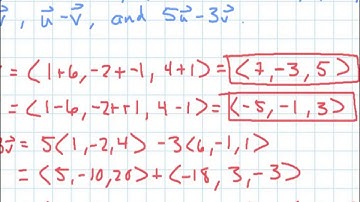 v⃗, u⃗-v⃗, and 5u⃗-3v⃗.
= ⟨1+6, -2+-1, 4+1⟩ = ⟨7, -3, 5⟩
= ⟨1-6, -2++1, 4-1⟩ = ⟨-5, -1, 3⟩
3v⃗ = 5⟨1, -2, 4⟩ -3⟨6, -1, 1⟩
= ⟨5, -10, 20⟩+⟨-18, 3, -3⟩